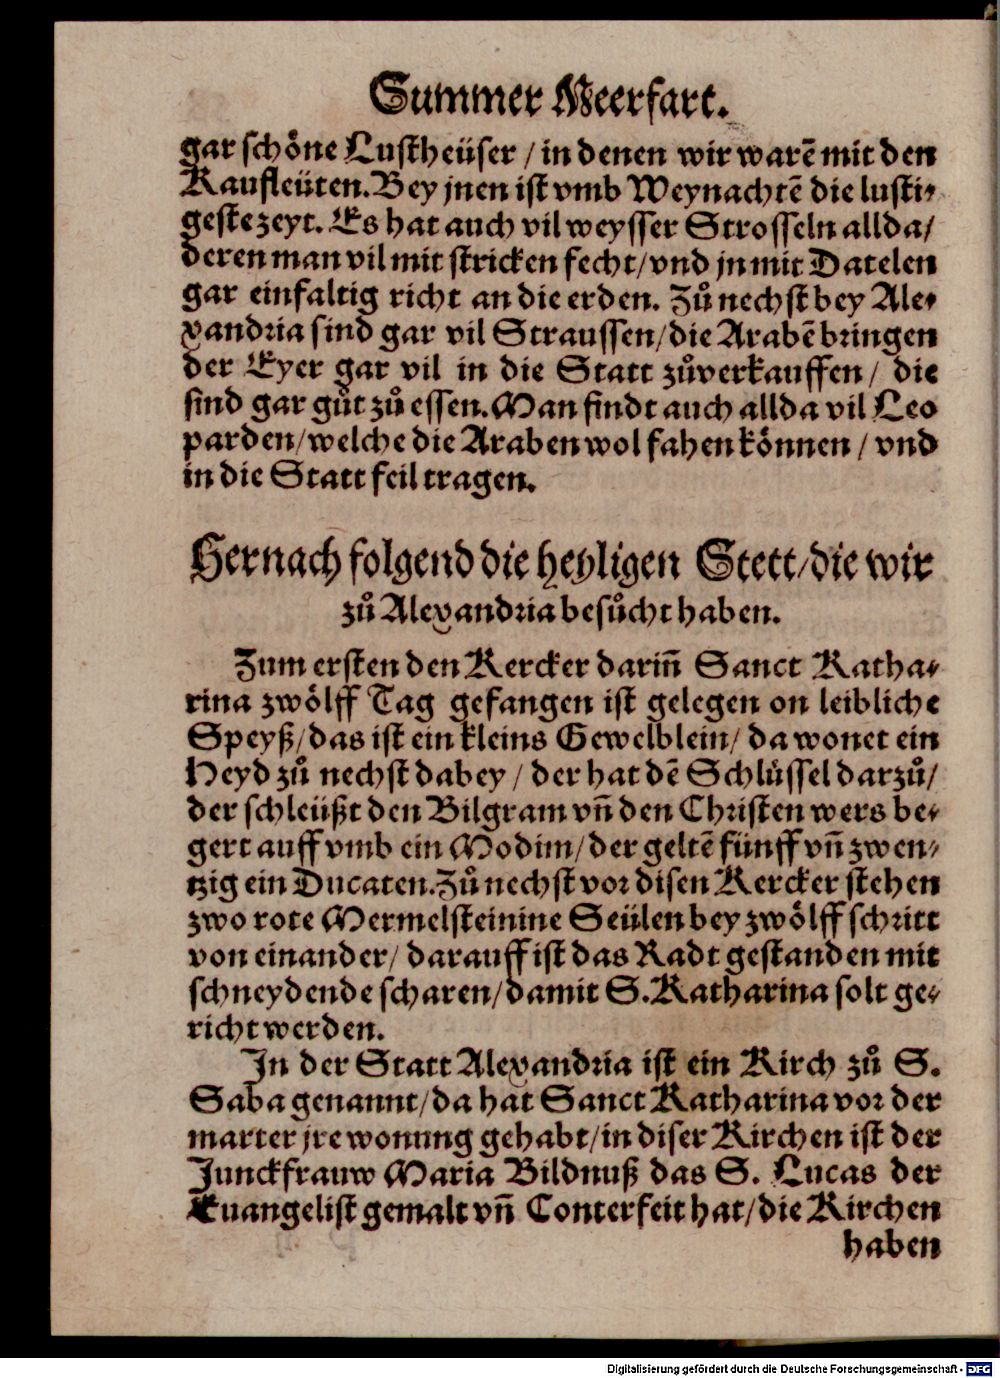 Summer Meerfart.
gar schöne Lustheüser / in denen wir warē mit den
Kaufleüten. Bey jnen ist vmb Weynachtē die lusti-
geste zeyt. Es hat auch vil weysser Strosseln allda/
deren man vil mit stricken fecht/ vnd jn mit Datelen
gar einfaltig richt an die erden. Zů nechst bey Ale-
xandria sind gar vil Straussen/ die Arabē bringen
der Eyer gar vil in die Statt zůverkauffen / die
sind gar gůt zů essen. Man findt auch allda vil Leo
parden/ welche die Araben wol fahen können / vnd
in die Statt feil tragen.
Hernach folgend die heyligen Stett/ die wir
zů Alexandria besůcht haben.
Zum ersten den Kercker dariñ Sanct Katha-
rina zwölff Tag gefangen ist gelegen on leibliche
Speyß/ das ist ein kleins Gewelblein/ da wonet ein
Heyd zů nechst dabey / der hat dē Schlüssel darzů/
der schleüßt den Bilgram vñ den Christen wers be-
gert auff vmb ein Modim/ der geltē fünff vñ zwen-
tzig ein Ducaten. Zů nechst vor disen Kercker stehen
zwo rote Mermelsteinine Seülen bey zwölff schritt
von einander/ darauff ist das Radt gestanden mit
schneydende scharen/ damit S. Katharina solt ge-
richt werden.
In der Statt Alexandria ist ein Kirch zů S.
Saba genannt/ da hat Sanct Katharina vor der
marter jre wonung gehabt/ in diser Kirchen ist der
Junckfrauw Maria Bildnuß das S. Lucas der
Euangelist gemalt vñ Conterfeit hat/ die Kirchen
haben
Digitalisierung gefördert durch die Deutsche Forschungsgemeinschaft - DFG